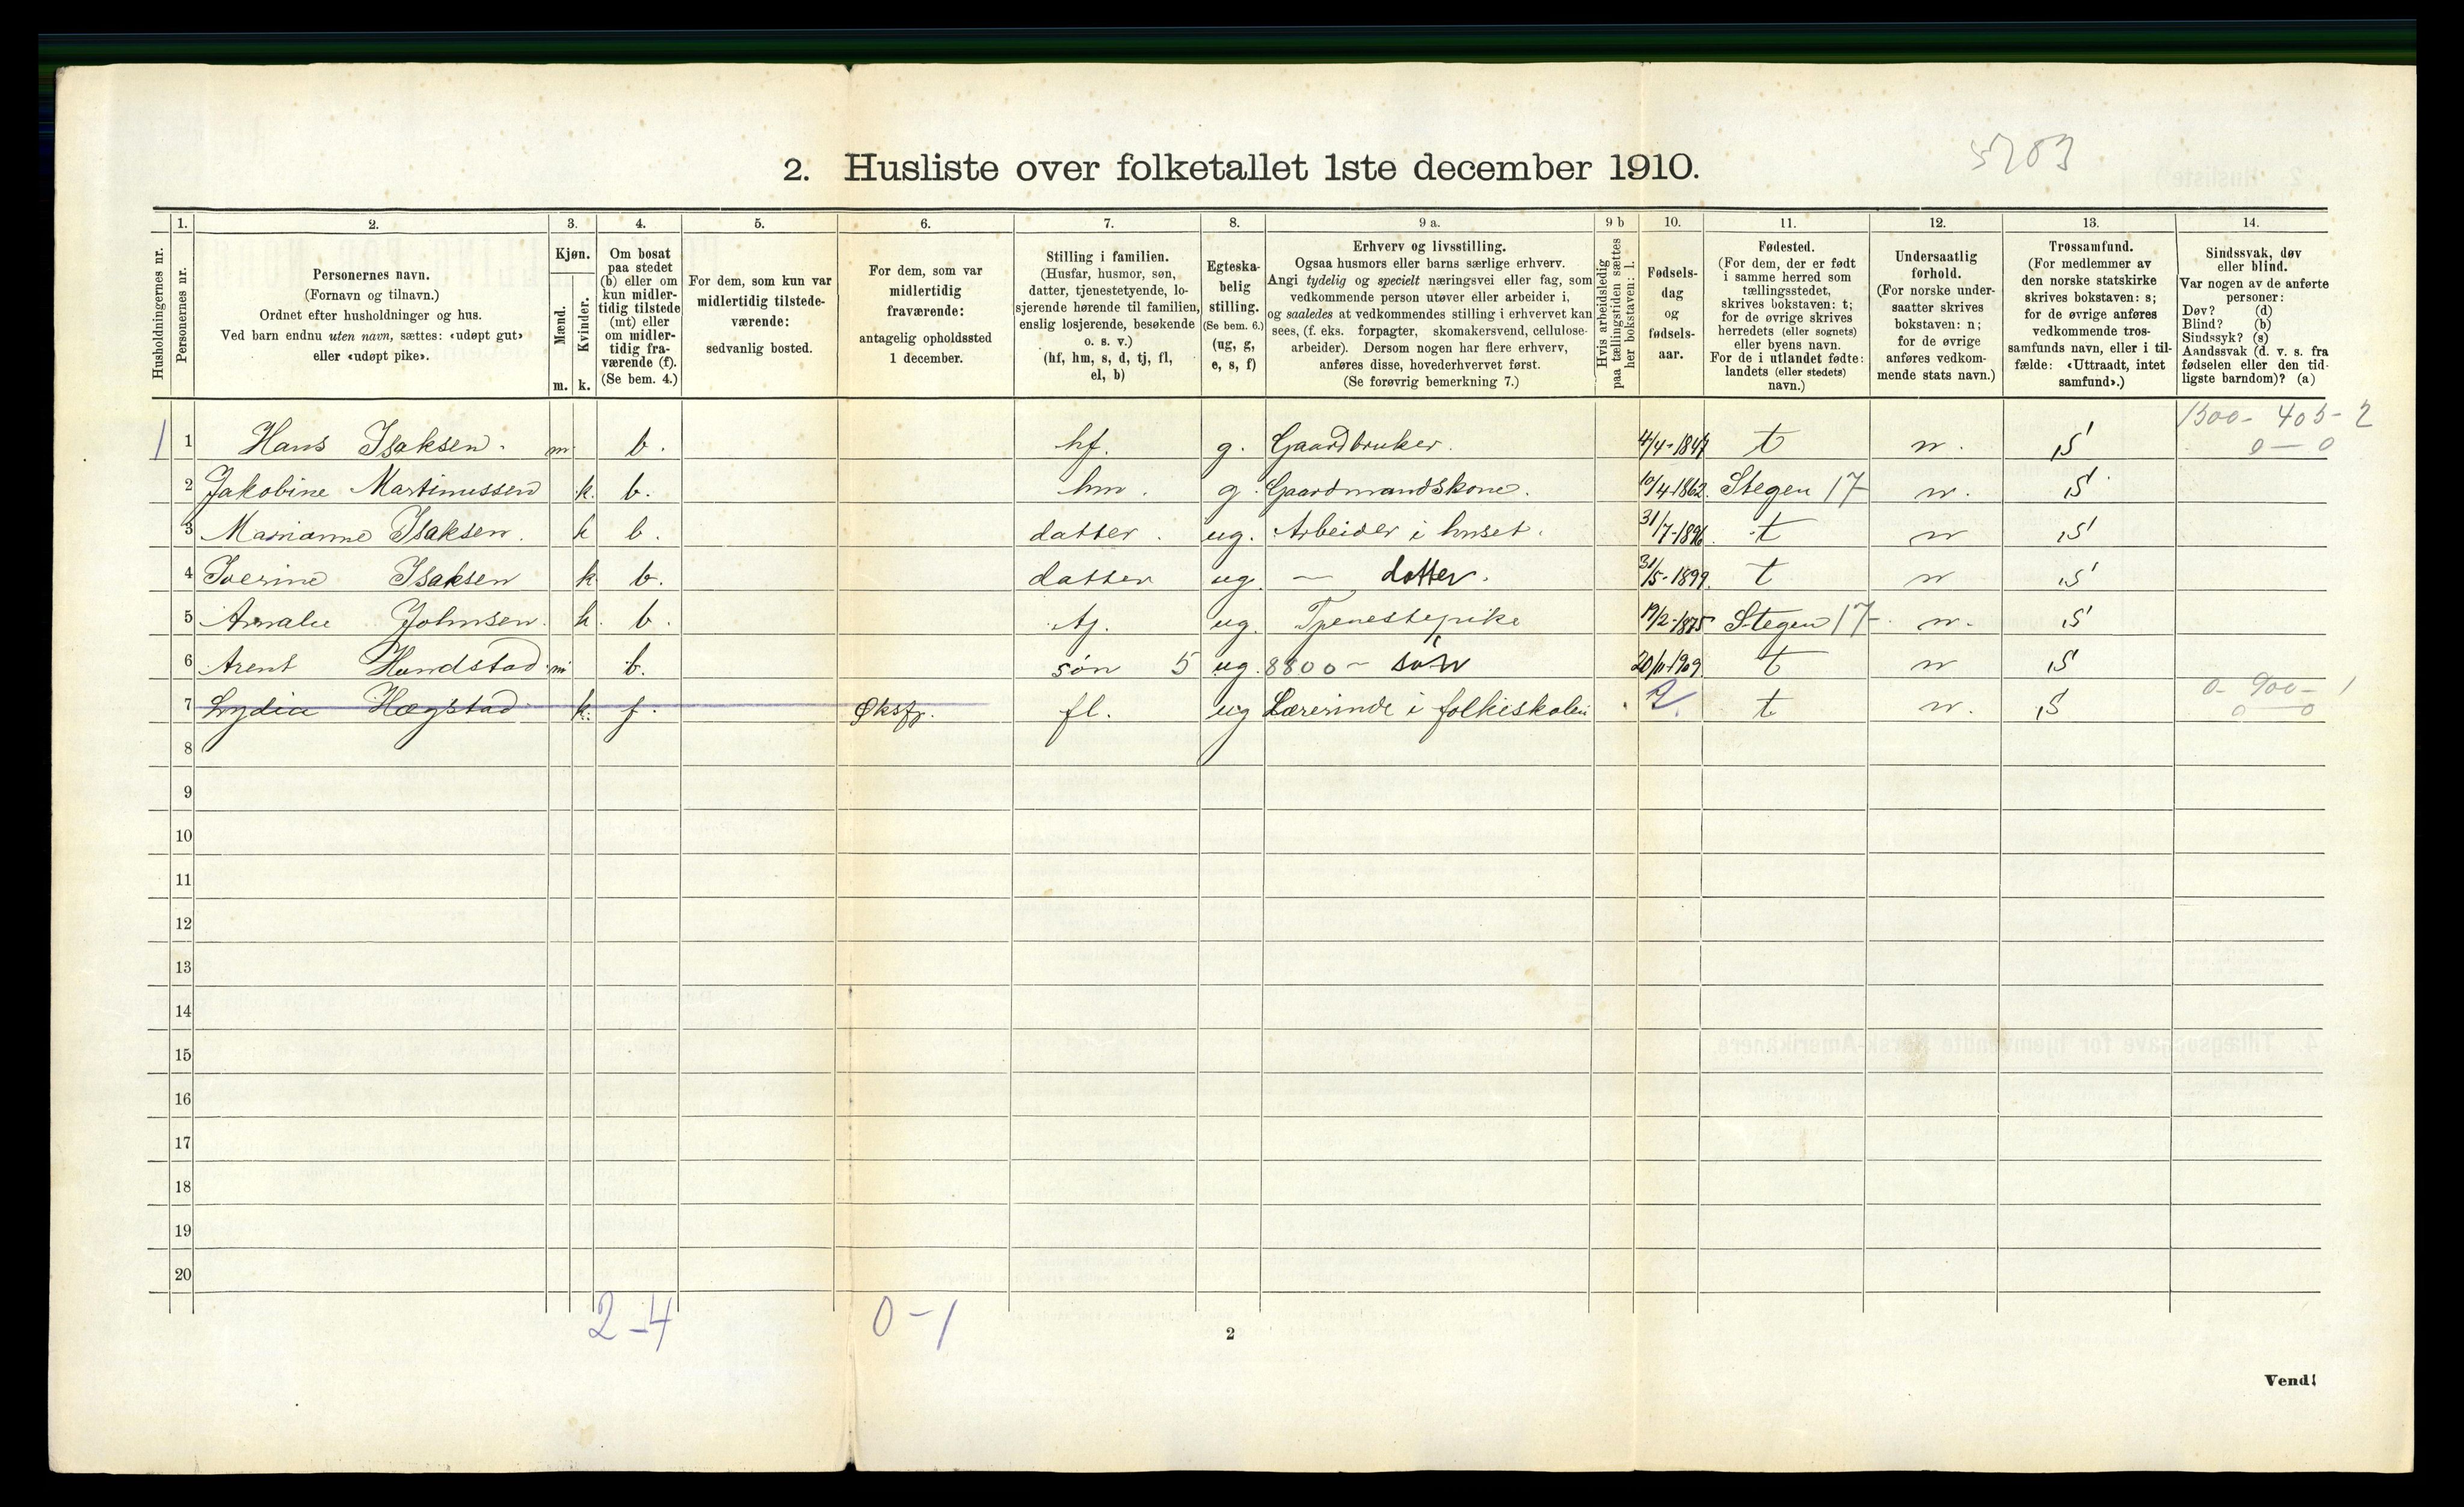 5203
2. Husliste over folketallet 1ste december 1910.
Husholdningernes nr.
1.
Personernes nr.
2.
Personernes navn.
(Fornavn og tilnavn.)
Ordnet efter husholdninger og hus.
Ved barn endnu uten navn, sættes: «udøpt gut»
eller «udøpt pike».
3.
Kjøn.
Mænd.
Kvinder.
m. k.
4.
Om bosat
paa stedet
(b) eller om
kun midler-
tidig tilstede
(mt) eller
om midler-
tidig fra-
værende (f).
(Se bem. 4.)
5.
For dem, som kun var
midlertidig tilstede-
værende:
sedvanlig bosted.
6.
For dem, som var
midlertidig
fraværende:
antagelig opholdssted
1 december.
7.
Stilling i familien.
(Husfar, husmor, søn,
datter, tjenestetyende, lo-
sjerende hørende til familien,
enslig losjerende, besøkende
o. s. v.)
(hf, hm, s, d, tj, fl,
el, b)
8.
Egteska-
belig
stilling.
(Se bem. 6.)
(ug, g,
e, s, f)
9 a.
Erhverv og livsstilling.
Ogsaa husmors eller barns særlige erhverv.
Angi tydelig og specielt næringsvei eller fag, som
vedkommende person utøver eller arbeider i,
og saaledes at vedkommendes stilling i erhvervet kan
sees, (f. eks. forpagter, skomakersvend, cellulose-
arbeider). Dersom nogen har flere erhverv,
anføres disse, hovederhvervet først.
(Se forøvrig bemerkning 7.)
9 b
Hvis arbeidsledig
paa tællingstiden sættes
her bokstaven: l.
10.
Fødsels-
dag
og
fødsels-
aar.
11.
Fødested.
(For dem, der er født
i samme herred som
tællingsstedet,
skrives bokstaven: t;
for de øvrige skrives
herredets (eller sognets)
eller byens navn.
For de i utlandet fødte:
landets (eller stedets)
navn.)
12.
Undersaatlig
forhold.
(For norske under-
saatter skrives
bokstaven: n;
for de øvrige
anføres vedkom-
mende stats navn.)
13.
Trossamfund.
(For medlemmer av
den norske statskirke
skrives bokstaven: s;
for de øvrige anføres
vedkommende tros-
samfunds navn, eller i til-
fælde: «Uttraadt, intet
samfund».)
14.
Sindssvak, døv
eller blind.
Var nogen av de anførte
personer:
Døv? (d)
Blind? (b)
Sindssyk? (s)
Aandssvak (d. v. s. fra
fødselen eller den tid-
ligste barndom)? (a)
1500 - 405 - 2
1 1 Hans Isaksen. m. b. hf. g. Gaardbruker. 4/4-1847 t n. S 0 — 0
2 Jakobine Martinussen k. b. hm. g. Gaardmandskone. 10/4-1862. Stegen 17 n. S
3 Marianne Isaksen. k b. datter. ug. Arbeider i huset. 31/7-1896. t n S
4 Isaksen k b. datter ug. — datter. 31/5-1899. t n S
5 Amalie Johnsen. k. b. tj. ug. Tjenestepike 19/2-1875 Stegen 17 n. S
6 Arent Hundstad m b. søn 5 ug. 8800 ~ søn 20/11-1909. t n S
0 - 900 - 1
7 Lydia Hægstad k. f. Øksfj. fl. ug Lærerinde i folkeskolen. t n. S 0 — 0
8
9
10
11
12
13
14
15
16
17
18
19
20
2-4 0-1
2
Vend!